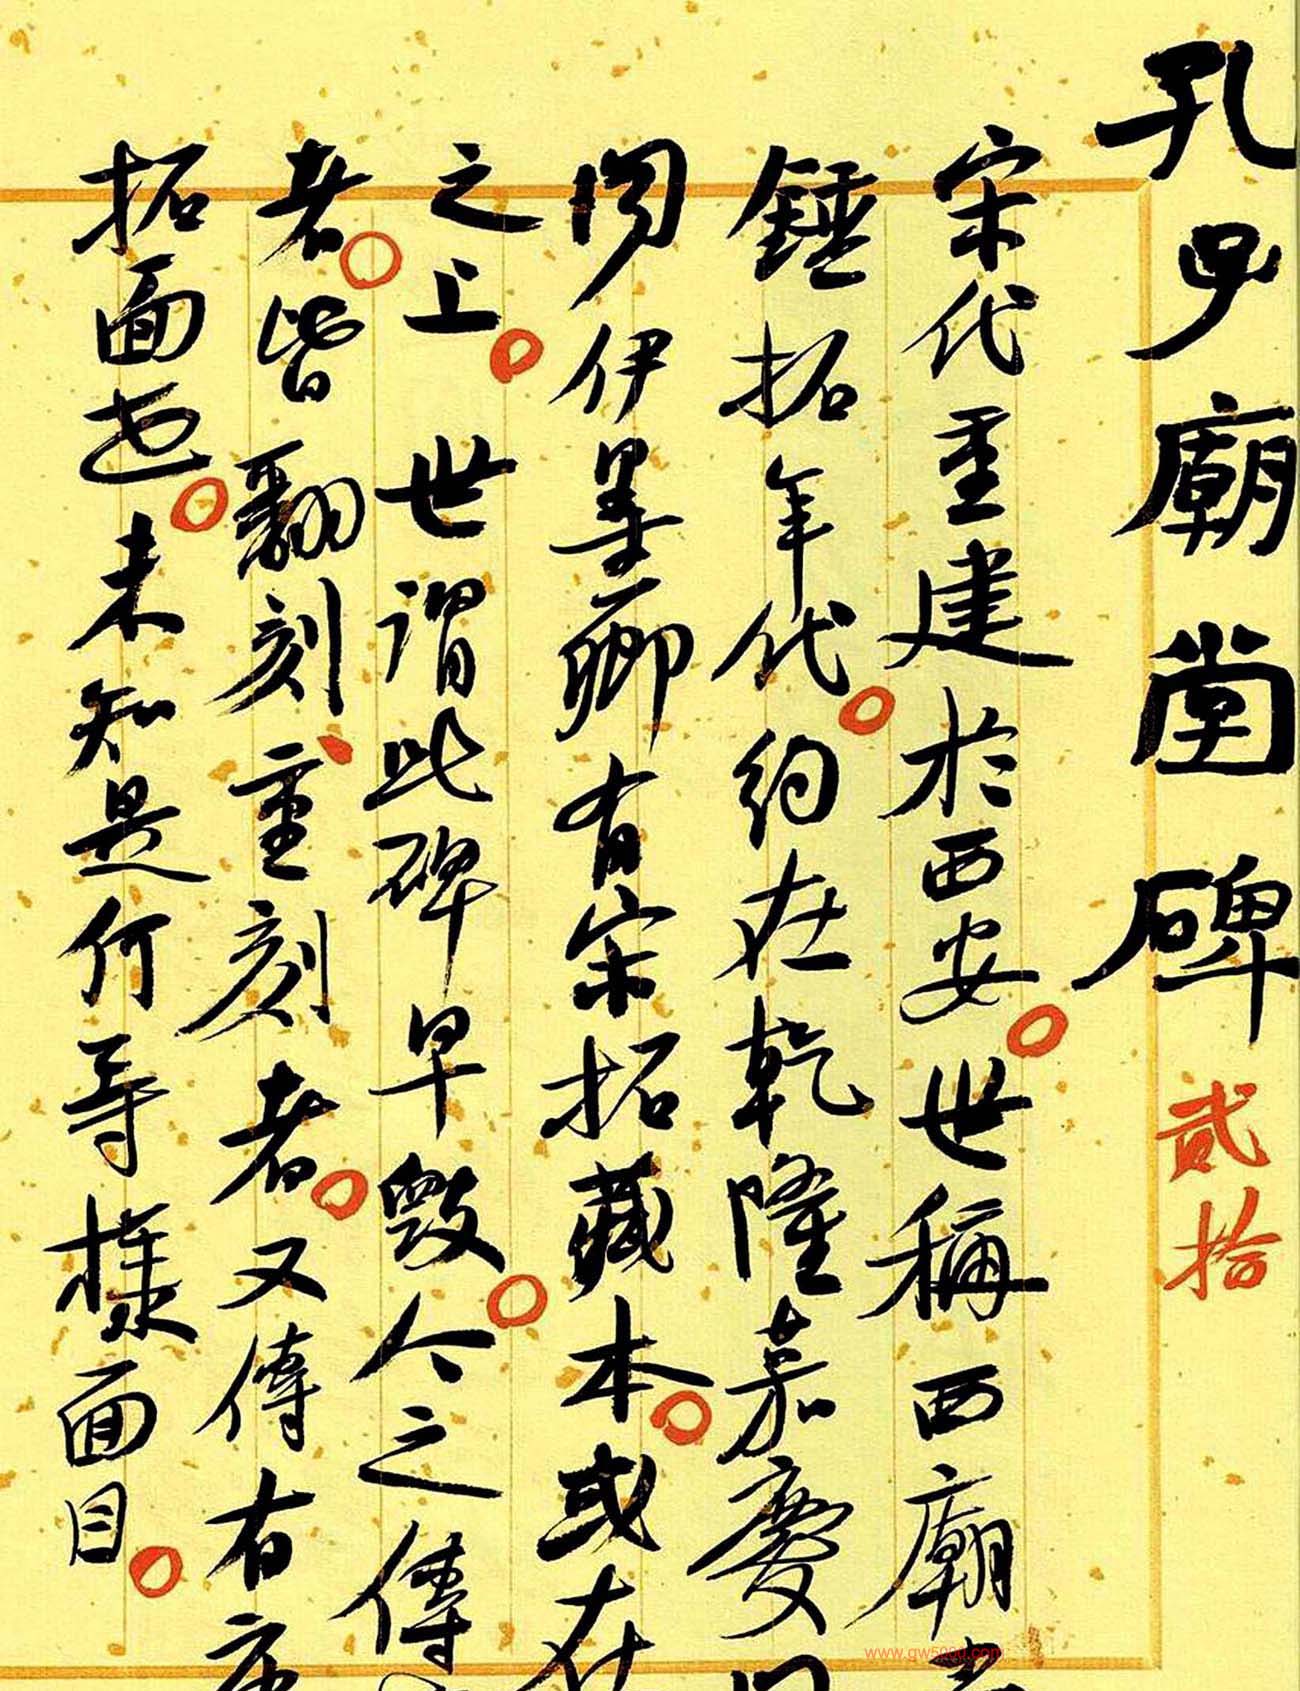 孔子廟堂碑 貳拾
宋代重建於西安。世稱西廟
錘拓年代。約在乾隆嘉慶
間伊墨卿有宋拓藏本。或在
之上。世謂此碑早毀。今之傳
者。皆翻刻、重刻者。又傳有
拓面也。未知是何等樣面目。
www.gw5000.com